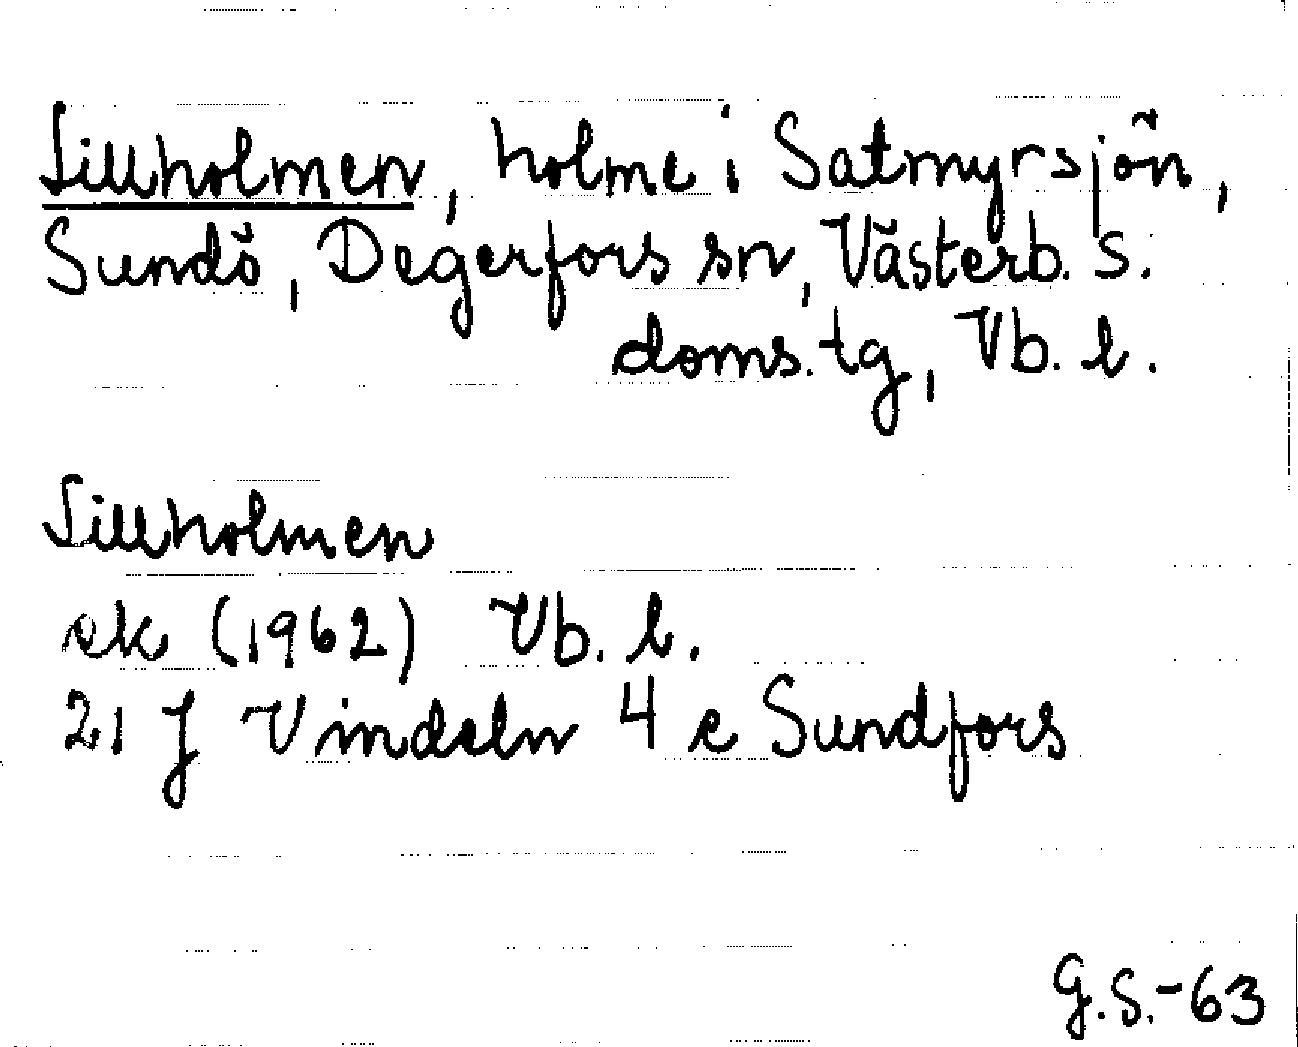 Sillholmen, holme i Satmyrsjön,
Sundö, Degerfors sn, Västerb. s.
doms. tg, Vb. l.
Sillholmen
ek (1962) Vb. l.
21 J Vindeln 4 e Sundfors
G.S.-63